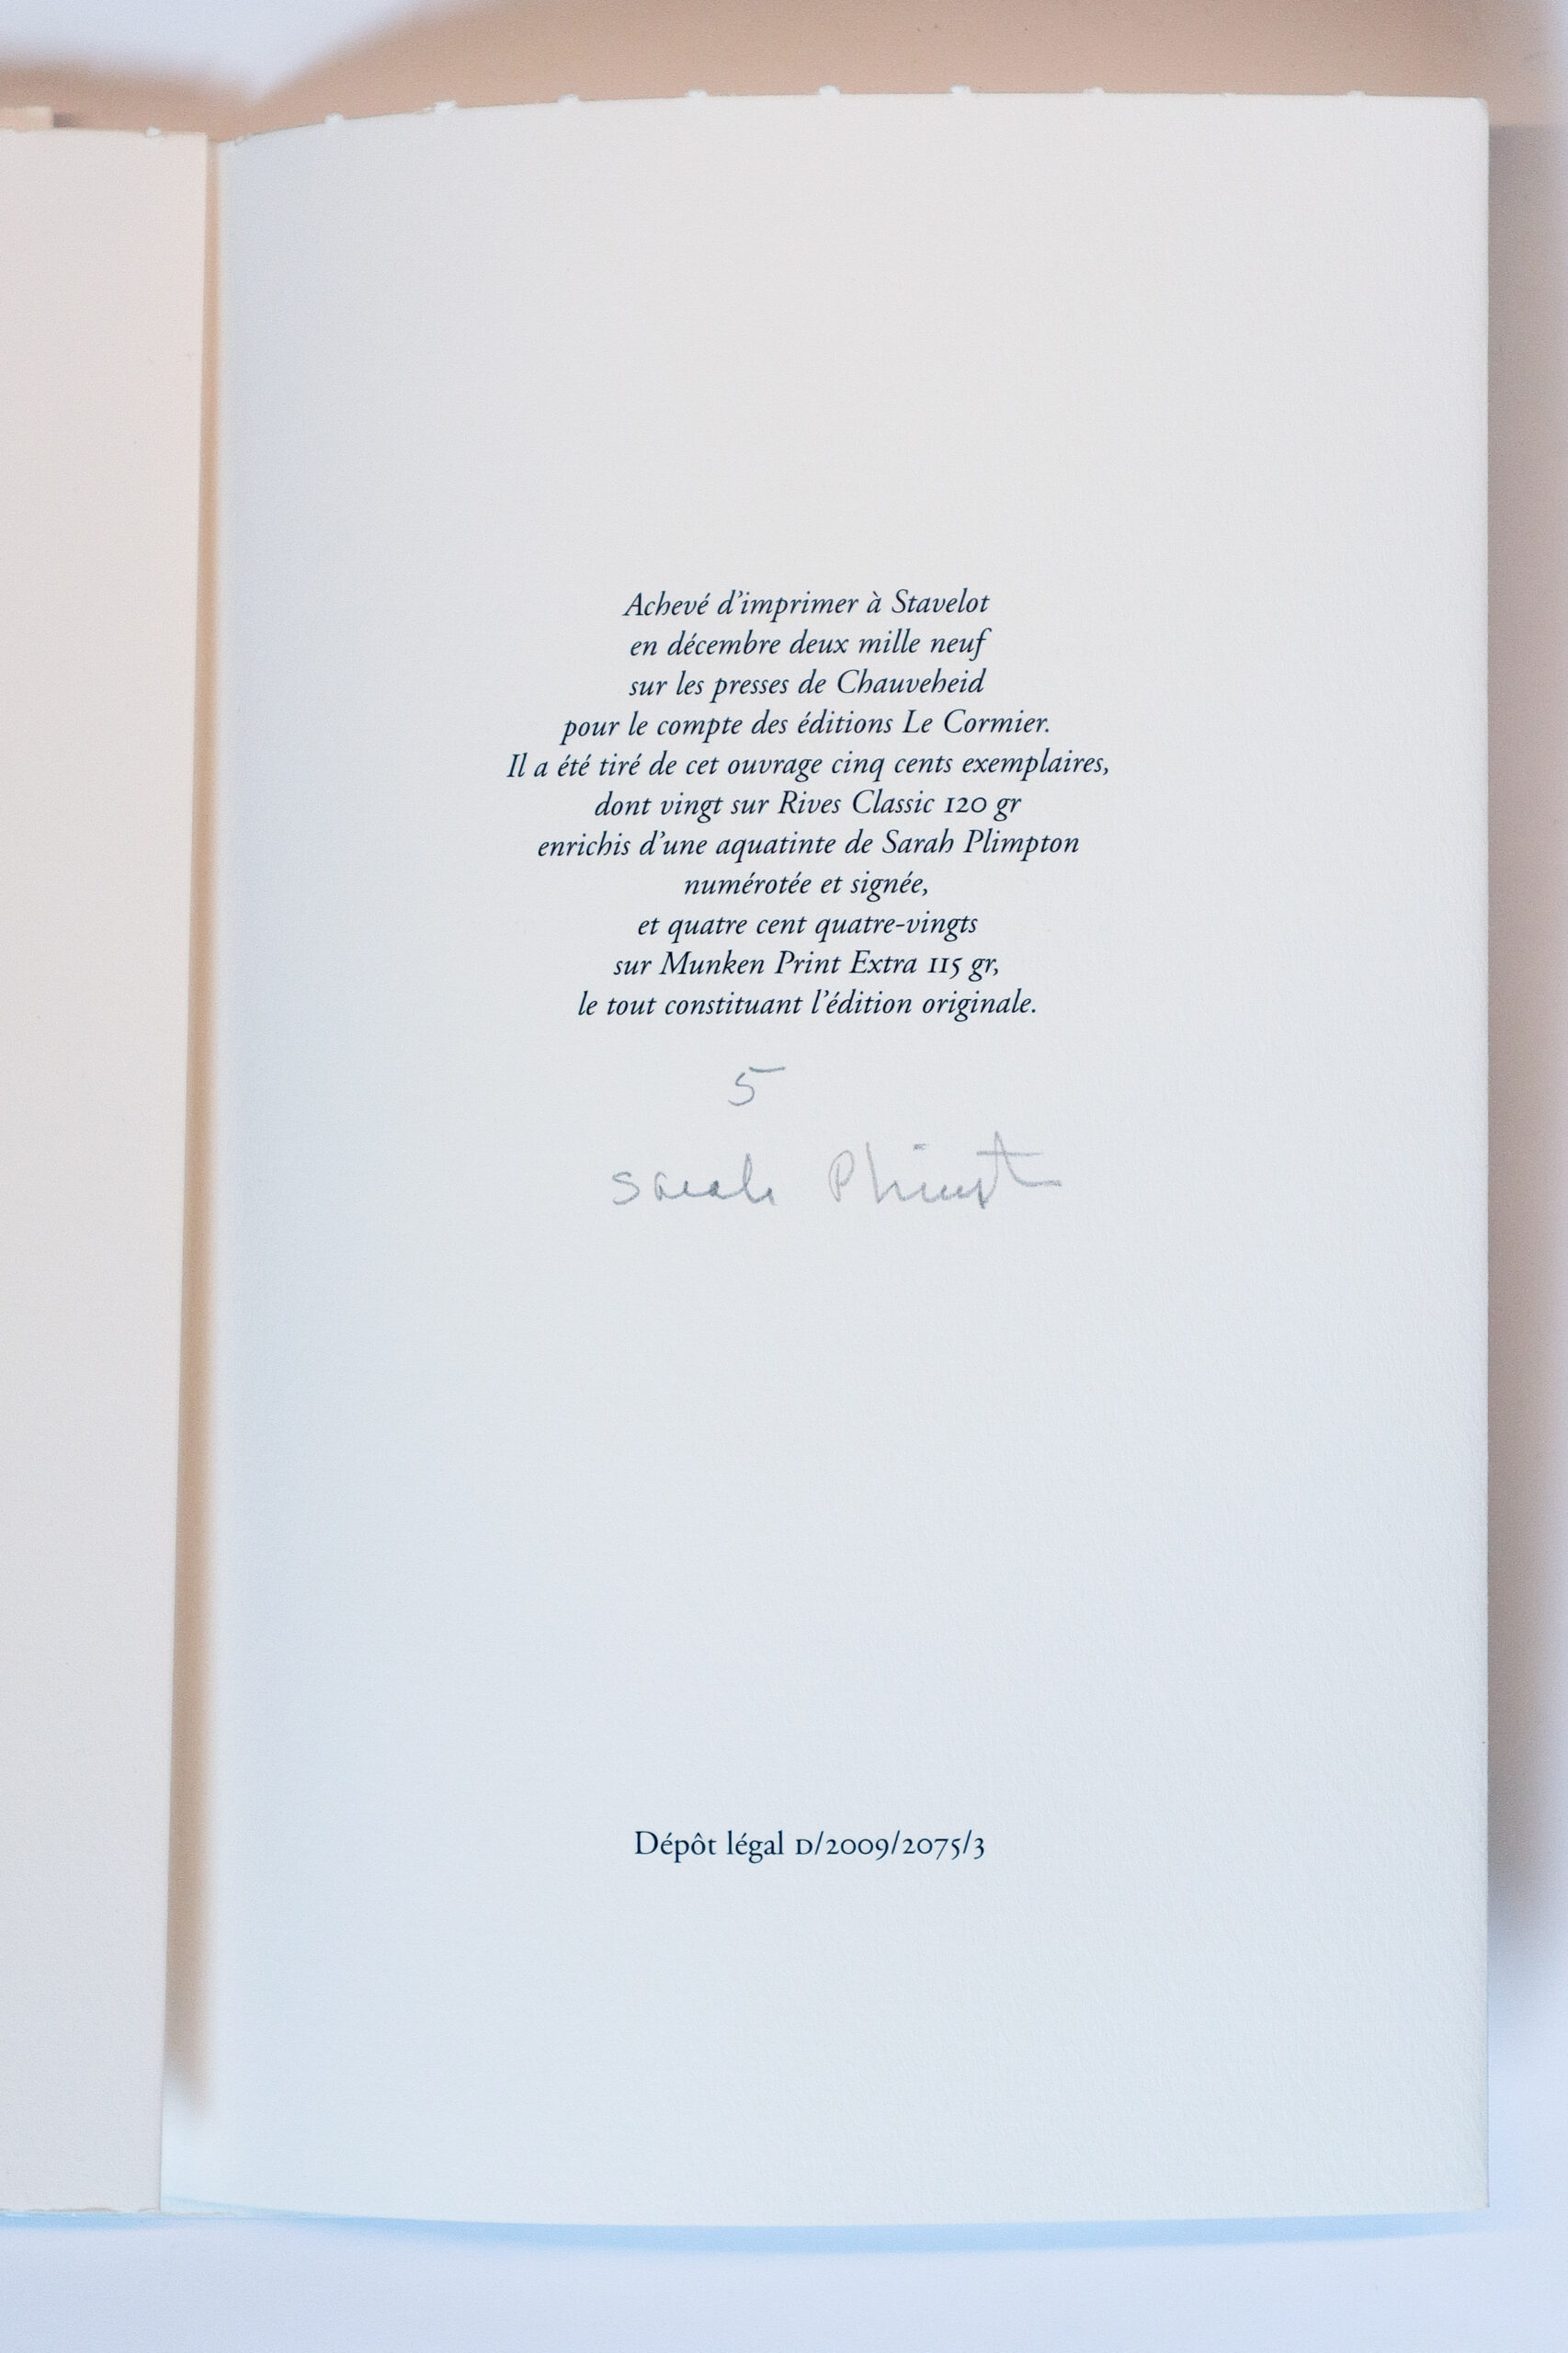 Achevé d’imprimer à Stavelot
en décembre deux mille neuf
sur les presses de Chauveheid
pour le compte des éditions Le Cormier.
Il a été tiré de cet ouvrage cinq cents exemplaires,
dont vingt sur Rives Classic 120 gr
enrichis d’une aquatinte de Sarah Plimpton
numérotée et signée,
et quatre cent quatre-vingts
sur Munken Print Extra 115 gr,
le tout constituant l’édition originale.
5
Sarah Plimpton
Dépôt légal D/2009/2075/3